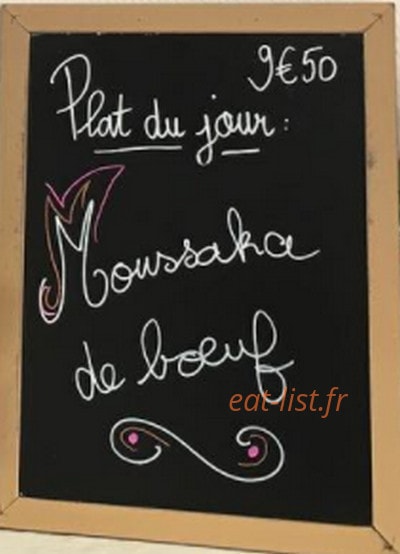 9€50
Plat du jour :
Moussaka
de bœuf
eat-list.fr